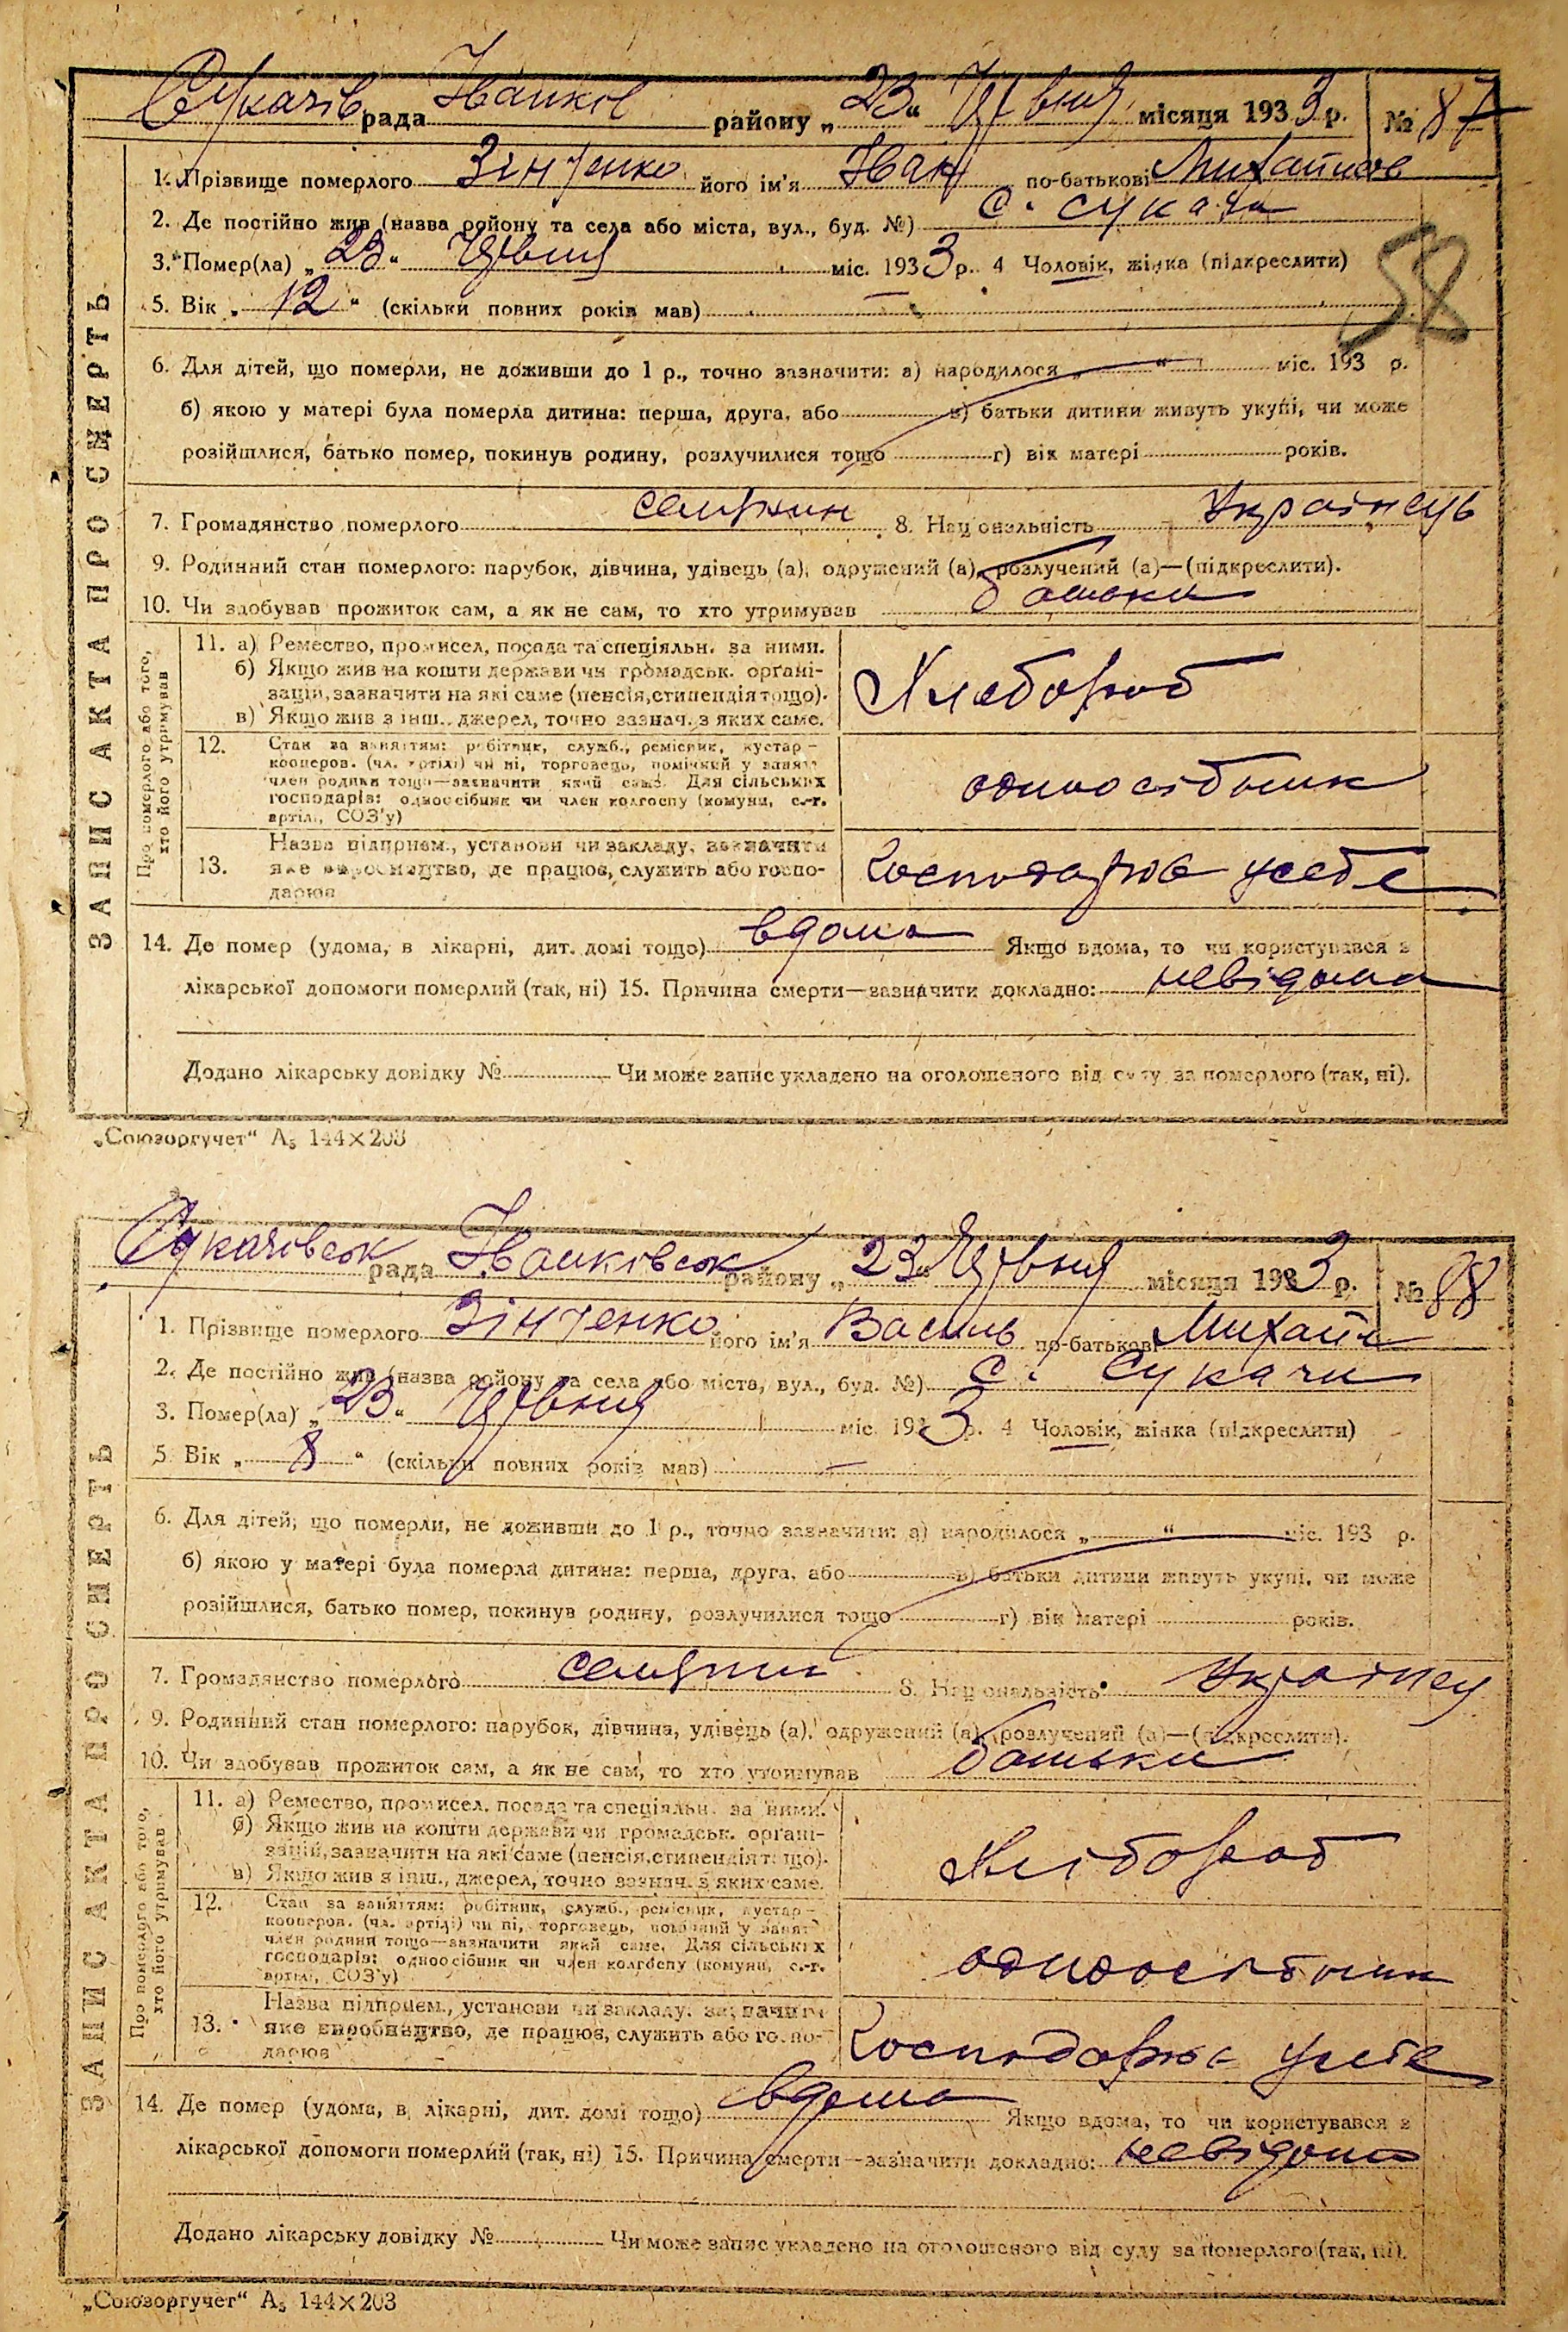 Сукачів рада Іванков району „23“ Червня місяця 1933 р. № 87
1. Прізвище померлого Зінченко його ім'я Іван по-батькові Михайлов
2. Де постійно жив (назва району та села або міста, вул., буд. №) с. Сукачі
3. Помер(ла) „23“ Червня міс. 1933 р. 4 Чоловік, жінка (підкреслити)
58
5. Вік „12“ (скільки повних років мав)
6. Для дітей, що померли, не доживши до 1 р., точно зазначити: а) народилося „ “ міс. 193 р.
б) якою у матері була померла дитина: перша, друга, або в) батьки дитини живуть укупі, чи може
розійшлися, батько помер, покинув родину, розлучилися тощо г) вік матері років.
7. Громадянство померлого 8. Національність Українець
9. Родинний стан померлого: парубок, дівчина, удівець (а), одружений (а), розлучений (а)—(підкреслити).
10. Чи здобував прожиток сам, а як не сам, то хто утримував батьки
ЗАПИС АКТА ПРО СМЕРТЬ
Про померлого або того, хто його утримував
11. а) Ремество, промисел, посада та спеціяльн. за ними.
б) Якщо жив на кошти держави чи громадськ. орґані-
зацій, зазначити на які саме (пенсія, стипендія тощо).
в) Якщо жив з інш. джерел, точно зазнач. з яких саме.
Хлебороб
12. Стан за заняттям: робітник, служб., ремісник, кустар—
кооперов. (чл. артілі) чи ні, торговець, помічний у занят.
член родини тощо—зазначити який саме. Для сільських
господарів: одноосібник чи член колгоспу (комуни, с.-г.
артілі, СОЗ'у)
одноосібник
13. Назва підприєм., установи чи закладу, зазначити
яке виробництво, де працює, служить або госпо-
дарює
господарює у себе
14. Де помер (удома, в лікарні, дит. домі тощо) вдома Якщо вдома, то чи користувався з
лікарської допомоги померлий (так, ні) 15. Причина смерти—зазначити докладно: невідома
Додано лікарську довідку № Чи може запис укладено на оголошеного від суду за померлого (так, ні).
„Союзоргучет“ А₅ 144×203
Сукачівськ рада Іванківськ району „23“ Червня місяця 1933 р. № 88
1. Прізвище померлого Зінченко його ім'я Василь по-батькові Михайл
2. Де постійно жив (назва району та села або міста, вул., буд. №) с. Сукачи
3. Помер(ла) „23“ Червня міс. 1933 р. 4 Чоловік, жінка (підкреслити)
5. Вік „8“ (скільки повних років мав)
6. Для дітей, що померли, не доживши до 1 р., точно зазначити: а) народилося „ “ міс. 193 р.
б) якою у матері була померла дитина: перша, друга, або в) батьки дитини живуть укупі, чи може
розійшлися, батько помер, покинув родину, розлучилися тощо г) вік матері років.
7. Громадянство померлого 8. Національність Українец
9. Родинний стан померлого: парубок, дівчина, удівець (а), одружений (а), розлучений (а)—(підкреслити).
10. Чи здобував прожиток сам, а як не сам, то хто утримував батьки
ЗАПИС АКТА ПРО СМЕРТЬ
Про померлого або того, хто його утримував
11. а) Ремество, промисел, посада та спеціяльн. за ними.
б) Якщо жив на кошти держави чи громадськ. орґані-
зацій, зазначити на які саме (пенсія, стипендія тощо).
в) Якщо жив з інш., джерел, точно зазнач. з яких саме.
Хлібороб
12. Стан за заняттям: робітник, служб., ремісник, кустар—
кооперов. (чл. артілі) чи ні, торговець, помічний у занят.
член родини тощо—зазначити який саме. Для сільських
господарів: одноосібник чи член колгоспу (комуни, с.-г.
артілі, СОЗ'у)
одноосібник
13. Назва підприєм., установи чи закладу, зазначити
яке виробництво, де працює, служить або госпо-
дарює
господарює у себе
14. Де помер (удома, в лікарні, дит. домі тощо) вдома Якщо вдома, то чи користувався з
лікарської допомоги померлий (так, ні) 15. Причина смерти—зазначити докладно: невідома
Додано лікарську довідку № Чи може запис укладено на оголошеного від суду за померлого (так, ні).
„Союзоргучет“ А₅ 144×203